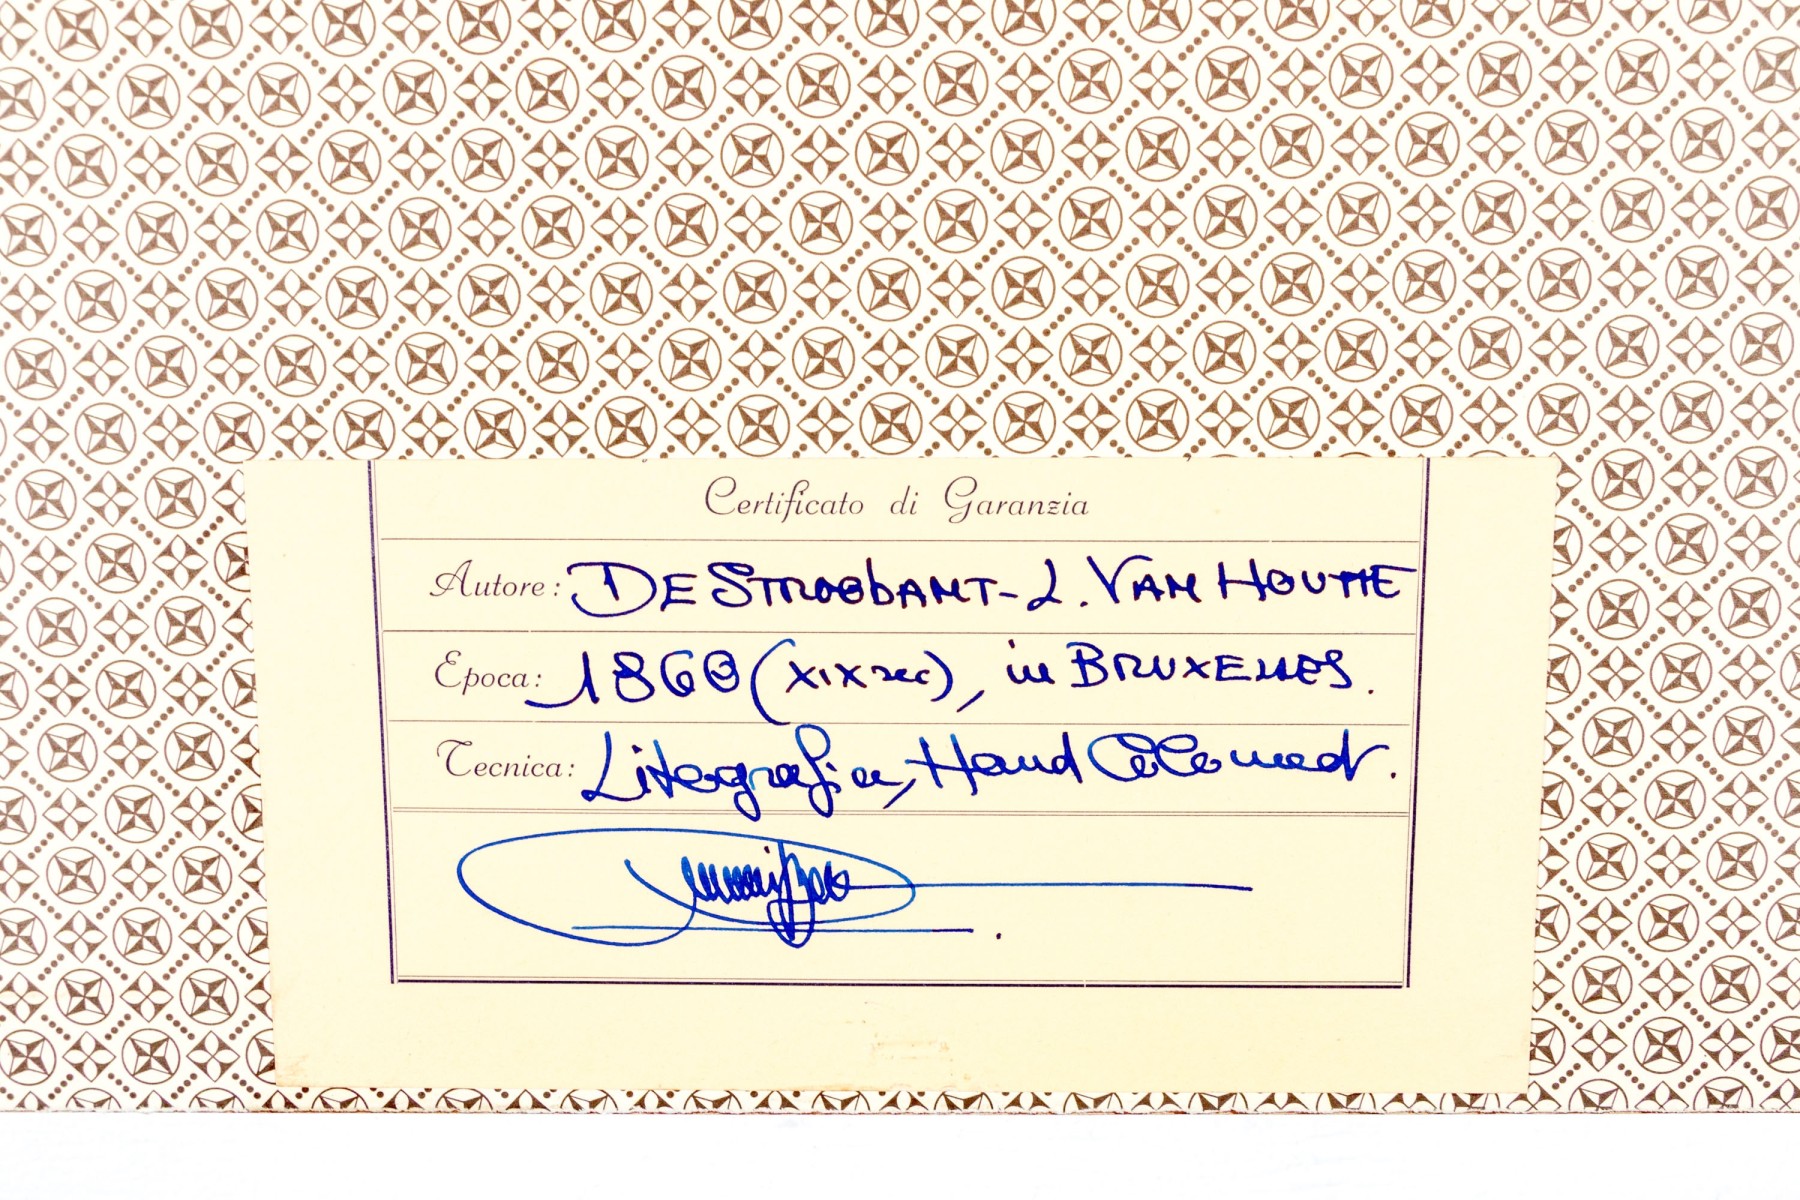 Certificato di Garanzia
Autore: DE STROOBANT - L. VAN HOUTTE
Epoca: 1860 (XIX sec), in BRUXELLES.
Tecnica: Litografia, Hand Coloured.